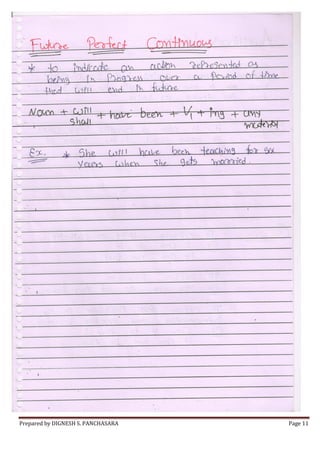 Future Perfect Continuous
* to indicate an action represented as
being in Progress over a Period of time
that will end in future
Noun + will + have been + V1 + ing + any
shall
material
Ex. * She will have been teaching for six
years when she gets married.
Prepared by DIGNESH S. PANCHASARA Page 11